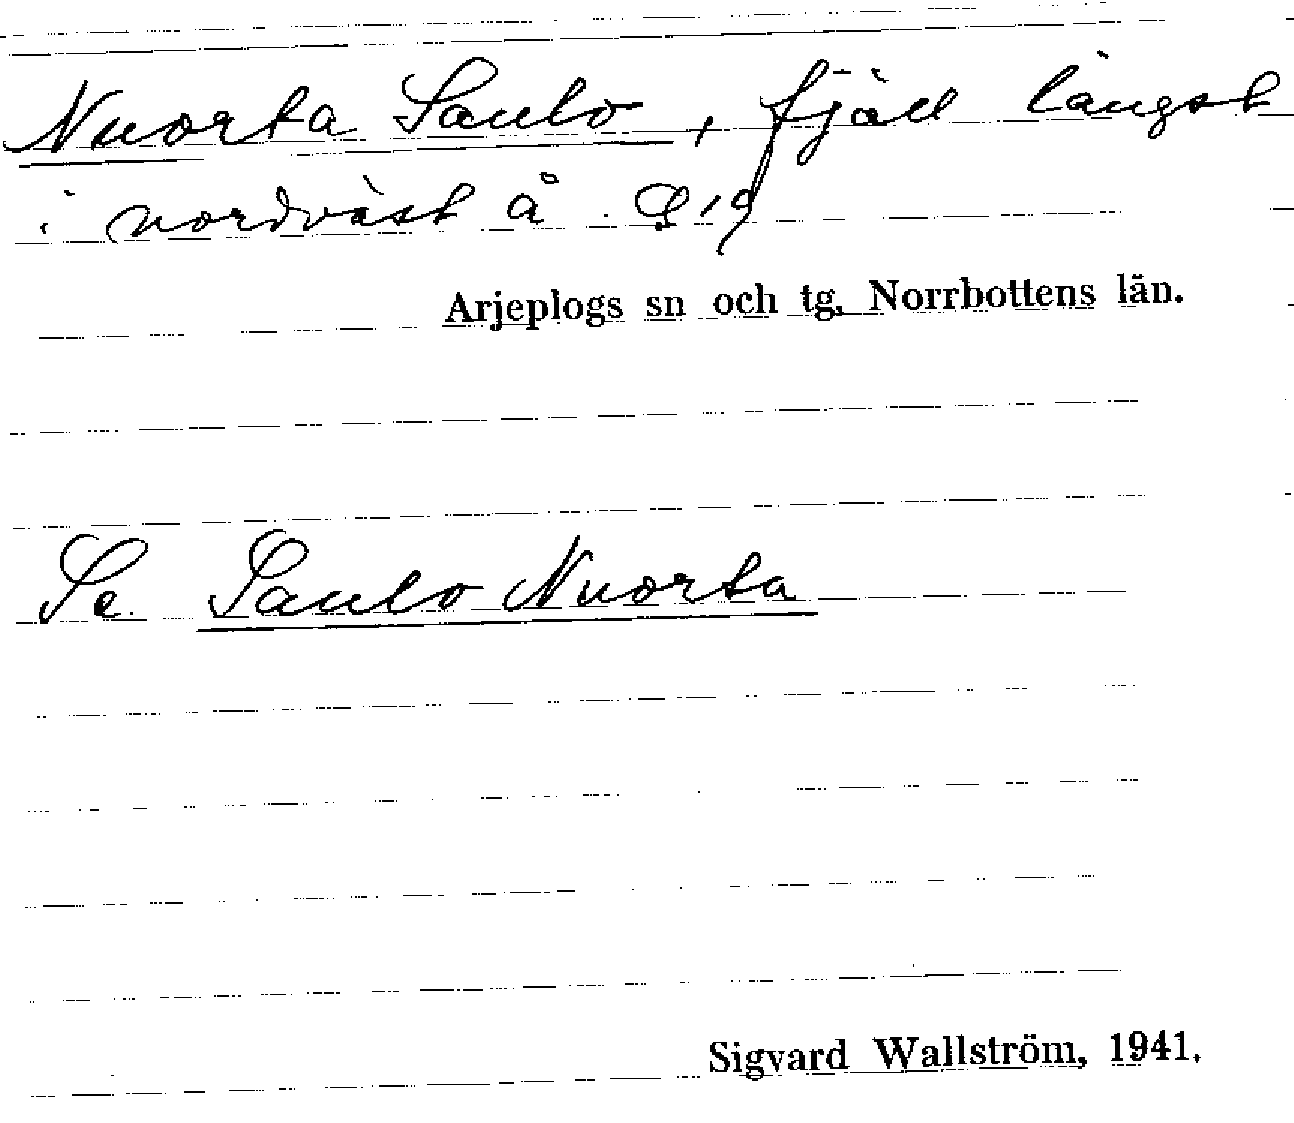 Nuorta Saulo, fjäll längst
i nordväst å
Arjeplogs sn och tg, Norrbottens län.
Se Saulo Nuorta
Sigvard Wallström, 1941.